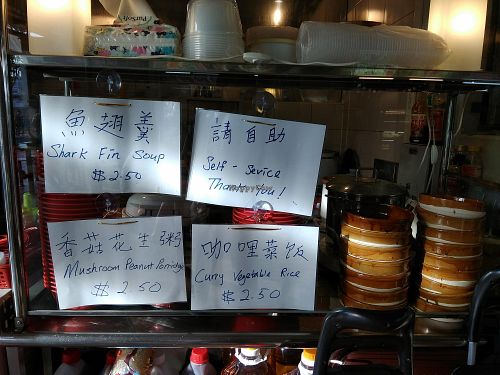 魚翅羹
Shark Fin Soup
$2.50
請自助
Self-Sevice
Thank You!
香菇花生粥
Mushroom Peanut Porridge
$2.50
咖哩菜饭
Curry Vegetable Rice
$2.50